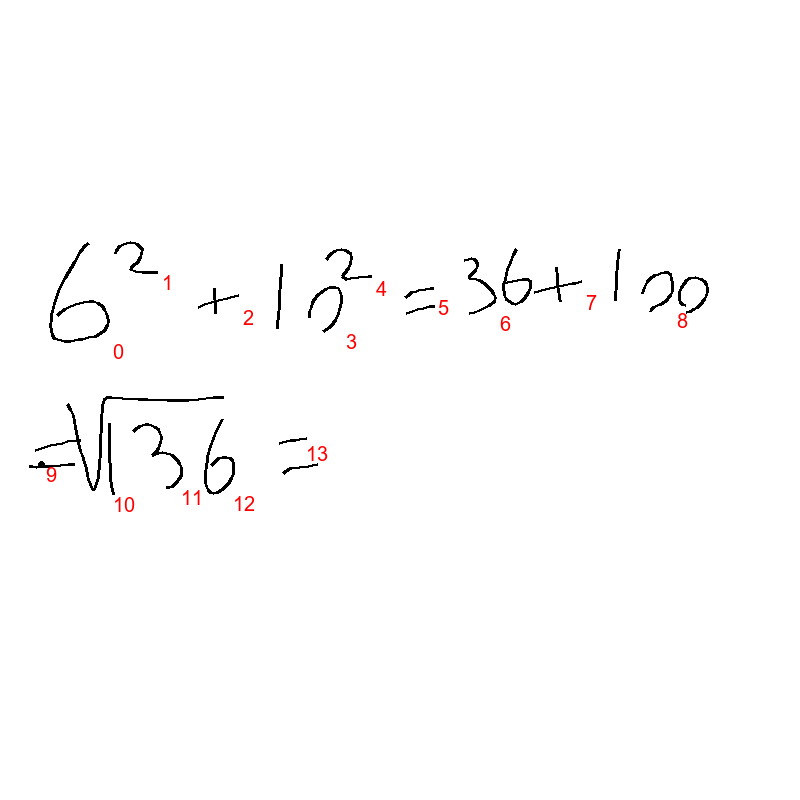 6² + 10² = 36 + 100
= √136 =
0 1 2 3 4 5 6 7 8
9 10 11 12 13